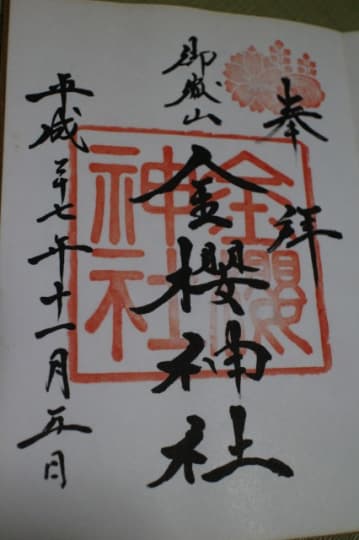 奉拝
御嶽山
金櫻神社
平成二十七年十一月五日
金櫻
神社